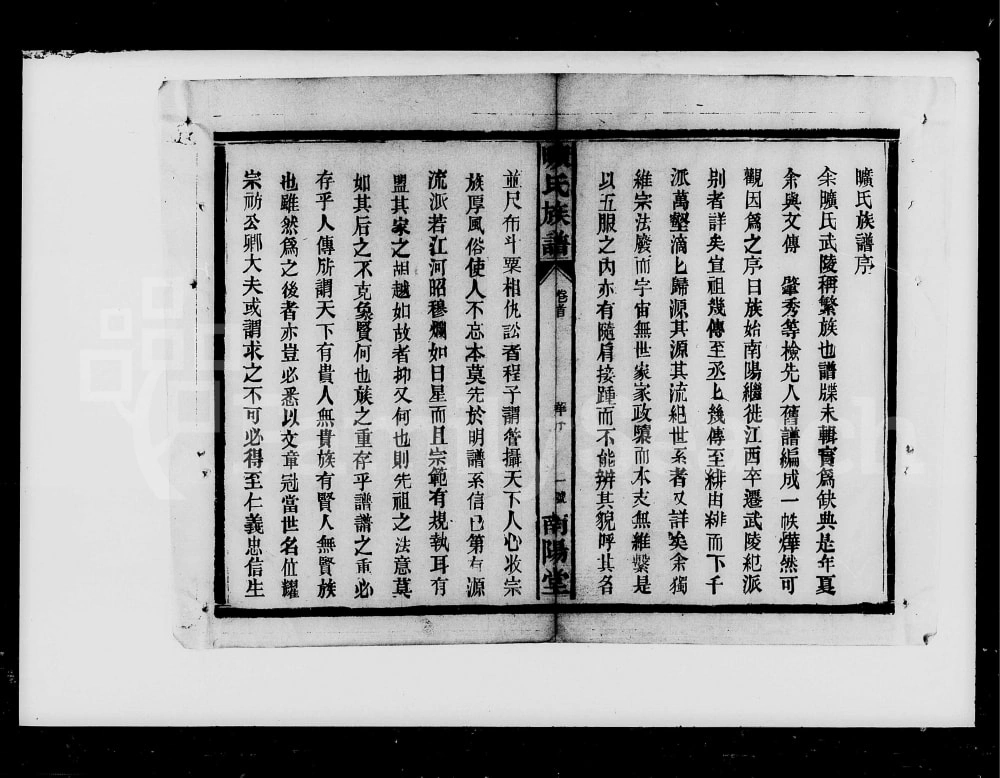 曠氏族譜序
余曠氏武陵稱繁族也譜牒未輯實為缺典是年夏
余與文傳 肇秀等檢先人舊譜編成一帙燁然可
觀因爲之序曰族始南陽繼徙江西卒遷武陵紀派
别者詳矣宣祖幾傳至丞上幾傳至緋由緋而下千
派萬壑滴匕歸源其源其流紀世系者又詳矣余獨
維宗法廢而宇宙無世家家政隳而本支無維繫是
以五服之內亦有隨肩接踵而不能辨其貌呼其名
曠氏族譜
卷首
序
一號
南陽堂
並尺布斗粟相仇訟者程子謂管攝天下人心收宗
族厚風俗使人不忘本莫先於明譜系信已第有源
流派若江河昭穆爛如日星而且宗範有規執耳有
盟其家之胡越如故者抑又何也則先祖之法意莫
如其后之不克象賢何也族之重存乎譜譜之重必
存乎人傳所謂天下有貴人無貴族有賢人無賢族
也雖然爲之後者亦豈必悉以文章冠當世名位耀
宗祊公卿大夫或謂求之不可必得至仁義忠信生